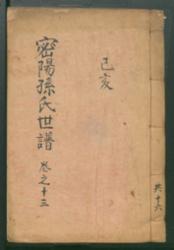 己亥
密陽孫氏世譜 卷之十三
共十六